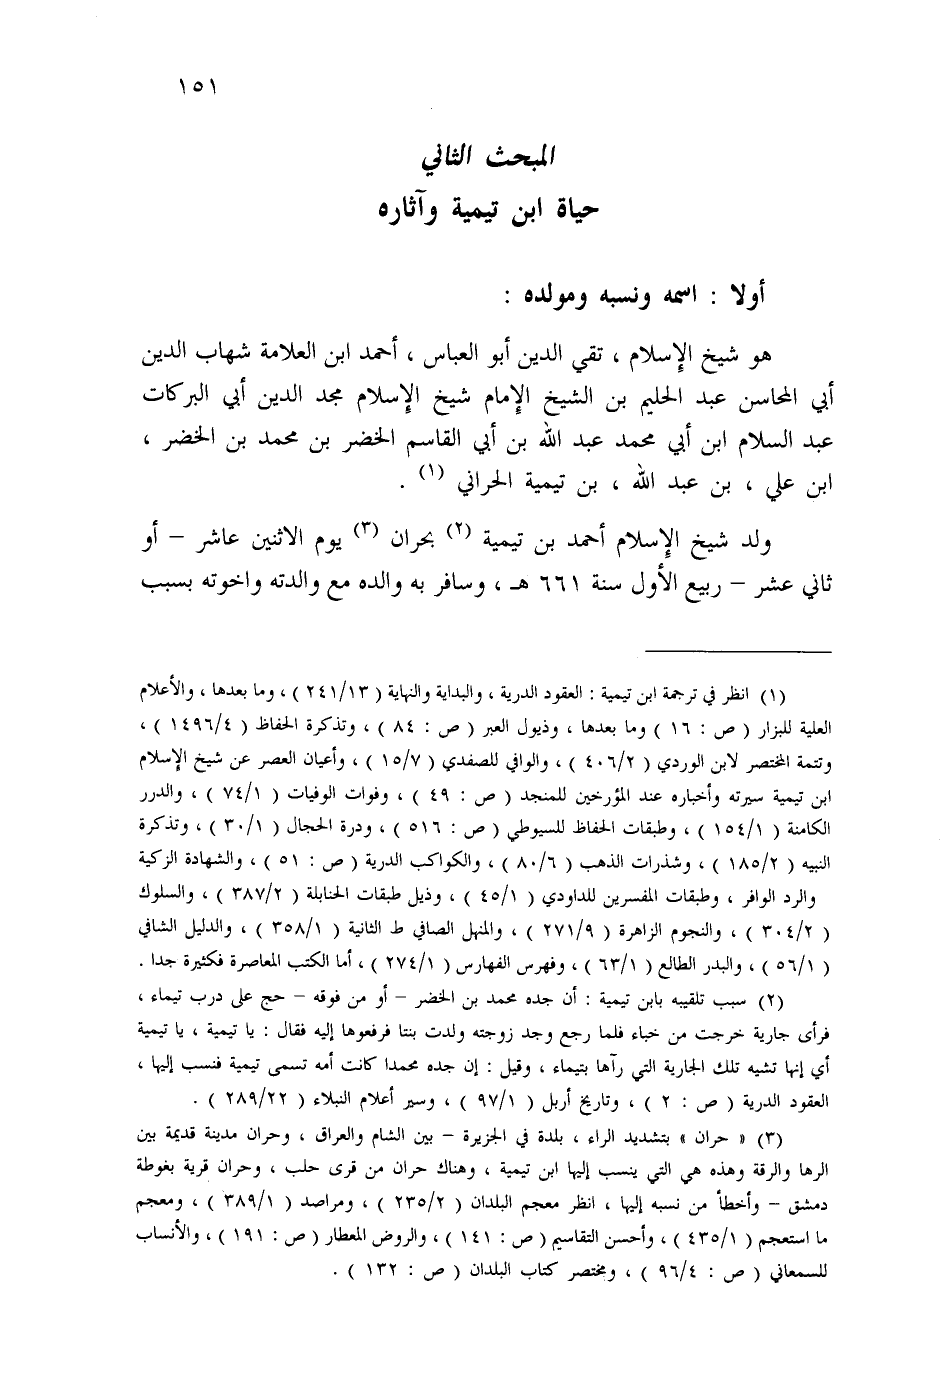 ١٥١
المبحث الثاني
حياة ابن تيمية وآثاره
أولا : اسمه ونسبه ومولده :
هو شيخ الإسلام ، تقي الدين أبو العباس ، أحمد ابن العلامة شهاب الدين
أبي المحاسن عبد الحليم بن الشيخ الإمام شيخ الإسلام مجد الدين أبي البركات
عبد السلام ابن أبي محمد عبد الله بن أبي القاسم الخضر بن محمد بن الخضر ،
ابن علي ، بن عبد الله ، بن تيمية الحراني (١) .
ولد شيخ الإسلام أحمد بن تيمية (٢) بحران (٣) يوم الاثنين عاشر – أو
ثاني عشر – ربيع الأول سنة ٦٦١ هـ ، وسافر به والده مع والدته واخوته بسبب
(١) انظر في ترجمة ابن تيمية : العقود الدرية ، والبداية والنهاية ( ٢٤١/١٣ ) ، وما بعدها ، والأعلام
العلية للبزار ( ص : ١٦ ) وما بعدها ، وذيول العبر ( ص : ٨٤ ) ، وتذكرة الحفاظ ( ١٤٩٦/٤ ) ،
وتتمة المختصر لابن الوردي ( ٤٠٦/٢ ) ، والوافي للصفدي ( ١٥/٧ ) ، وأعيان العصر عن شيخ الإسلام
ابن تيمية سيرته وأخباره عند المؤرخين للمنجد ( ص : ٤٩ ) ، وفوات الوفيات ( ٧٤/١ ) ، والدرر
الكامنة ( ١٥٤/١ ) ، وطبقات الحفاظ للسيوطي ( ص : ٥١٦ ) ، ودرة الحجال ( ٣٠/١ ) ، وتذكرة
النبيه ( ١٨٥/٢ ) ، وشذرات الذهب ( ٨٠/٦ ) ، والكواكب الدرية ( ص : ٥١ ) ، والشهادة الزكية
والرد الوافر ، وطبقات المفسرين للداودي ( ٤٥/١ ) ، وذيل طبقات الحنابلة ( ٣٨٧/٢ ) ، والسلوك
( ٣٠٤/٢ ) ، والنجوم الزاهرة ( ٢٧١/٩ ) ، والمنهل الصافي ط الثانية ( ٣٥٨/١ ) ، والدليل الشافي
( ٥٦/١ ) ، والبدر الطالع ( ٦٣/١ ) ، وفهرس الفهارس ( ٢٧٤/١ ) ، أما الكتب المعاصرة فكثيرة جدا .
(٢) سبب تلقيبه بابن تيمية : أن جده محمد بن الخضر – أو من فوقه – حج على درب تيماء ،
فرأى جارية خرجت من خباء فلما رجع وجد زوجته ولدت بنتا فرفعوها إليه فقال : يا تيمية ، يا تيمية
أي إنها تشبه تلك الجارية التي رآها بتيماء ، وقيل : إن جده محمدا كانت أمه تسمى تيمية فنسب إليها ،
العقود الدرية ( ص : ٢ ) ، وتاريخ أربل ( ٩٧/١ ) ، وسير أعلام النبلاء ( ٢٨٩/٢٢ ) .
(٣) « حران » بتشديد الراء ، بلدة في الجزيرة – بين الشام والعراق ، وحران مدينة قديمة بين
الرها والرقة وهذه هي التي ينسب إليها ابن تيمية ، وهناك حران من قرى حلب ، وحران قرية بغوطة
دمشق – وأخطأ من نسبه إليها ، انظر معجم البلدان ( ٢٣٥/٢ ) ، ومراصد ( ٣٨٩/١ ) ، ومعجم
ما استعجم ( ٤٣٥/١ ) ، وأحسن التقاسيم ( ص : ١٤١ ) ، والروض المعطار ( ص : ١٩١ ) ، والأنساب
للسمعاني ( ص : ٩٦/٤ ) ، ومختصر كتاب البلدان ( ص : ١٣٢ ) .